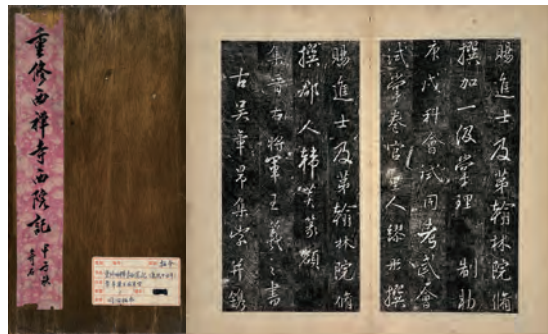 重修西祥寺西院記
甲子秋
賜進士及第翰林院脩
撰加一級掌理 制勅
庚戌科會試同考武會
試掌卷官里人繆彤撰
賜進士及第翰林院脩
撰郡人韓菼篆額
集晉右將軍王羲之書
古吳章昺集 并鐫